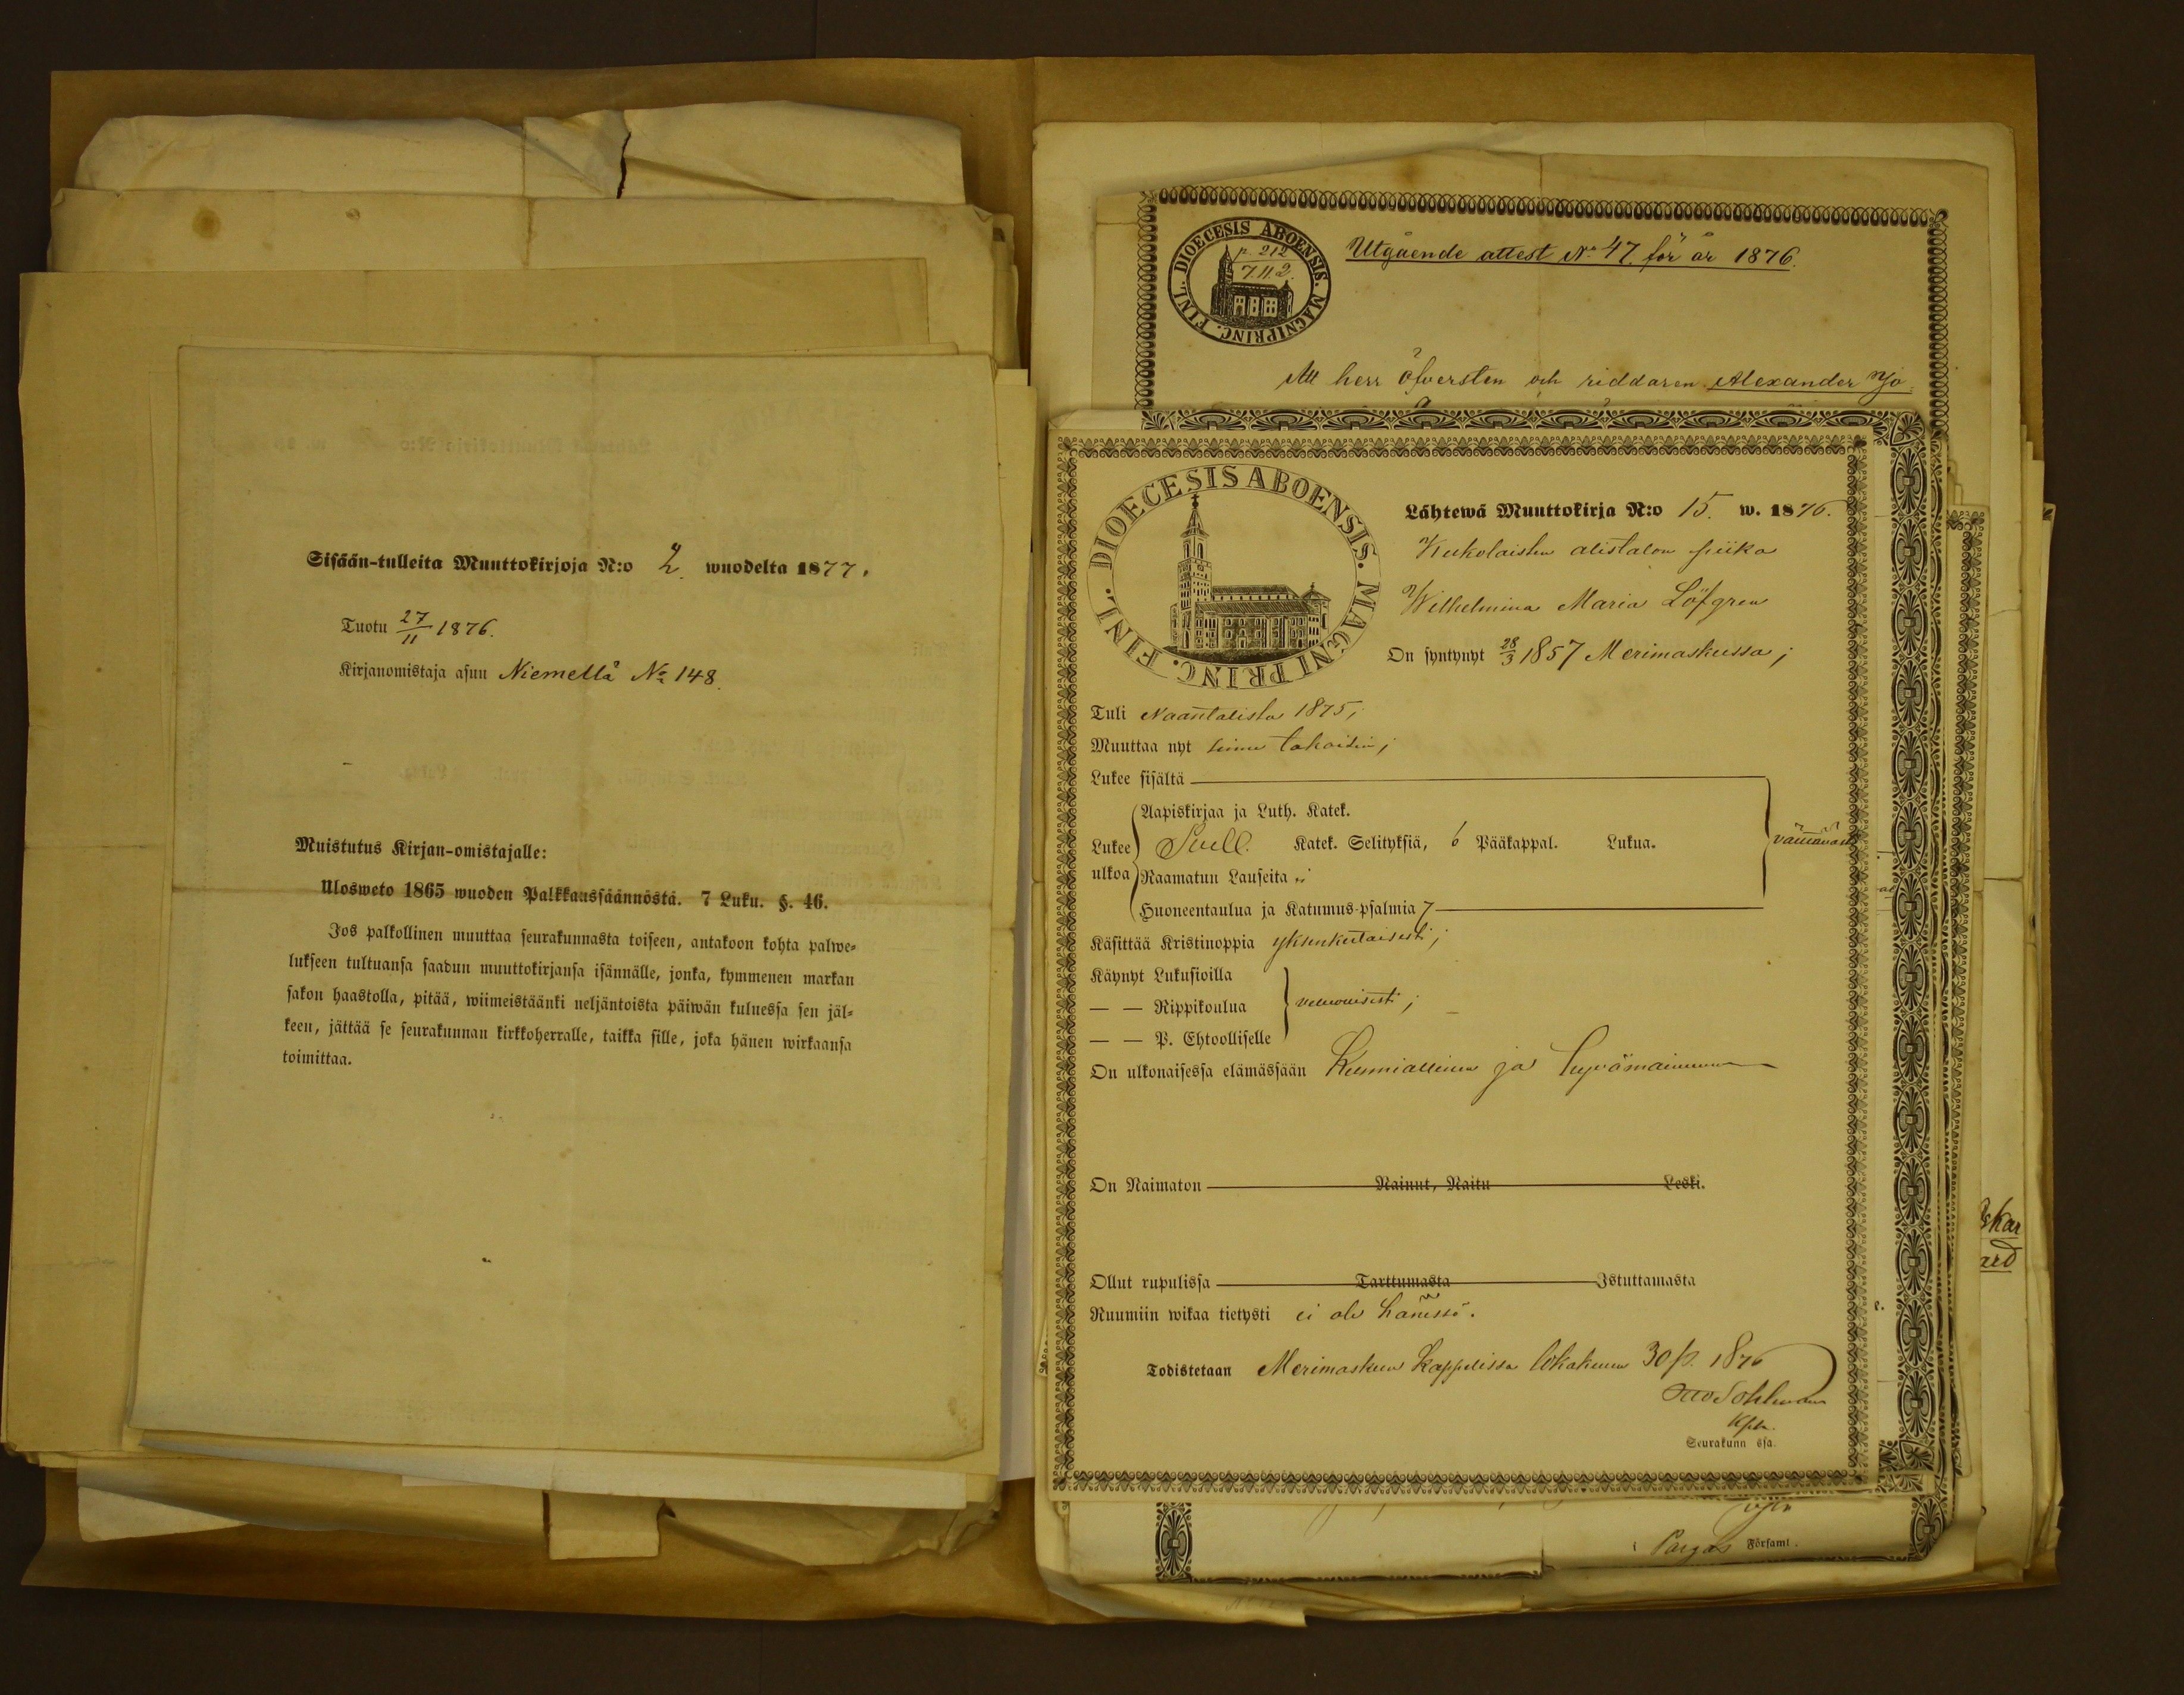 Sisään-tulleita Muuttokirjoja N:o 2. wuodelta 1877.
Tuotu 27/11 1876.
Kirjanomistaja asuu Niemellä No 148.
Muistutus Kirjan-omistajalle:
Ulosweto 1865 wuoden Palkkaussäännöstä. 7 Luku. §. 46.
Jos palkollinen muuttaa seurakunnasta toiseen, antakoon kohta palwe=
lukseen tultuansa saadun muuttokirjansa isännälle, jonka, kymmenen markan
sakon haastolla, pitää, wiimeistäänki neljäntoista päiwän kuluessa sen jäl=
keen, jättää se seurakunnan kirkkoherralle, taikka sille, joka hänen wirkaansa
toimittaa.
DIOECESIS ABOENSIS. MAGNIPRINC. FINL.
p. 212
7.11.2.
Utgående attest No 47. för år 1876.
Att herr öfversten och riddaren Alexander
DIOECESIS ABOENSIS. MAGNIPRINC. FINL.
Lähtewä Muuttokirja N:o 15. w. 1876.
alistalon piika
Wilhelmina Maria Löfgren
On syntynyt 28/3 1857 Merimaskussa;
Tuli Naantalista 1875;
Muuttaa nyt sinne takaisin;
Lukee sisältä
Aapiskirjaa ja Luth. Katek.
Lukee ulkoa
Katek. Selityksiä, 6 Pääkappal. Lukua.
Raamatun Lauseita
Huoneentaulua ja Katumus-psalmia 7
Käsittää Kristinoppia yksinkertaisesti;
Käynyt Lukusioilla
— — Rippikoulua
— — P. Ehtoolliselle
On ulkonaisessa elämässään Kunniallinen ja hyvämaininen
On Naimaton Nainut, Naitu Leski.
Ollut rupulissa Tarttumasta Istuttamasta
Ruumiin wikaa tietysti ei ole hänessä.
Todistetaan Merimaskun Kappelissa lokakuun 30 p. 1876
Kpln.
Seurakunn ssa.
skar
ard
i Pargas Församl.